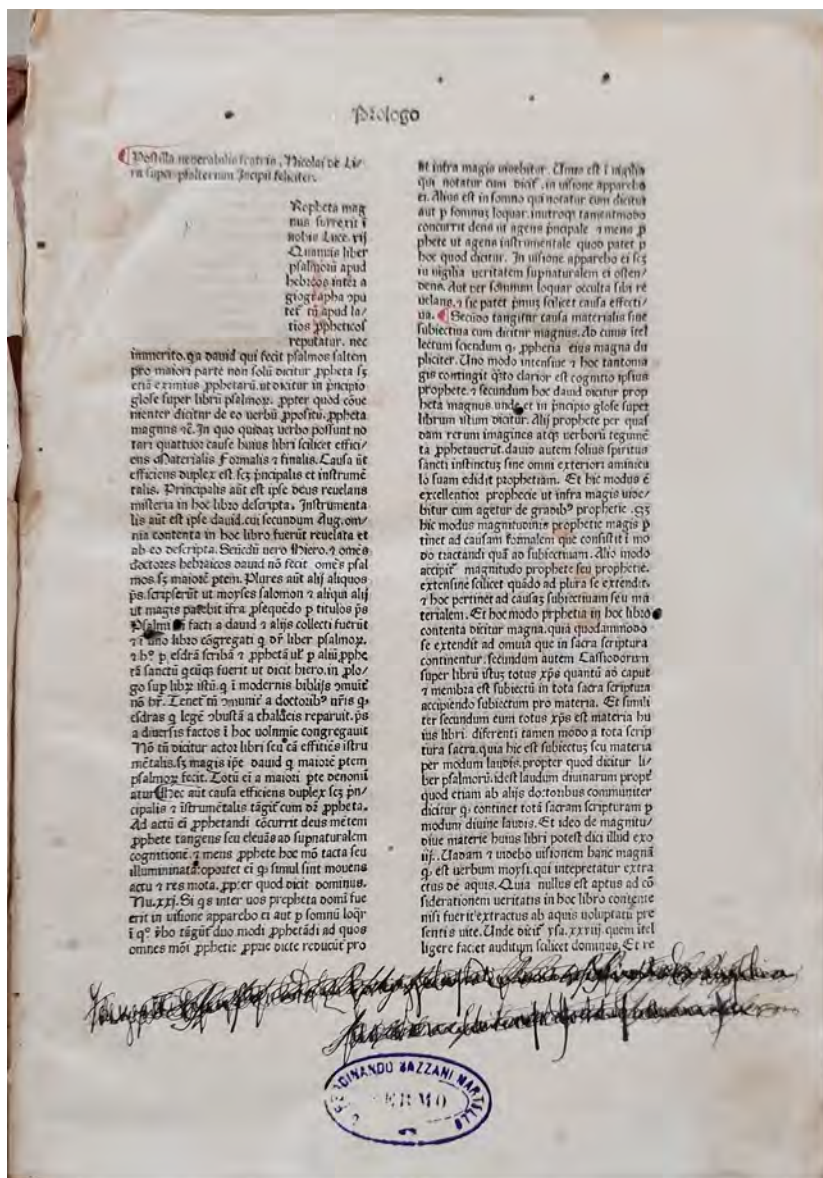 Prologo
Postilla uenerabilis fratris, Nicolai de Li-
ra super psalterium Incipit feliciter.
Ropheta mag
nus surrexit ī
nobis Luce. vij
Quamuis liber
psalmoꝝ apud
hebreos inter a
giographa ꝯpu
tet' tn̄ apud la/
tios ꝓpheticoſ
reputatur. nec
inmerito. qa dauid qui fecit psalmos saltem
pro maiori parte non solū dicitur ꝓpheta sꝫ
etiā eximius ꝓphetarū. ut dicitur in p̄ncipio
glose super librū psalmoꝝ. ꝓpter quod cōue
nienter dicitur de eo uerbū ꝓpositū. ꝓpheta
magnus ⁊c̄. In quo quidaꝫ uerbo possunt no
tari quattuoꝛ cause huius libri scilicet effici/
ens Materialis Formalis ⁊ finalis. Causa aūt
efficiens duplex est. scꝫ p̄ncipalis et instrumē
talis. Principalis aūt est ipse deus reuelans
misteria in hoc libro descripta. Instrumenta
lis aūt est ipse dauid. cui secundum Aug. om/
nia contenta in hoc libro fuerūt reuelata et
ab eo descripta. Secūdū uero Hiero. ⁊ omēs
doctores hebraicos dauid nō fecit omēs psal
mos. sꝫ maiorē ptem. Plures aūt alij aliquos
ps̄. scripserūt ut moyses salomon ⁊ aliqui alij
ut magis patebit ifra ꝓsequēdo p titulos ps̄
Psalmi facti a dauid ⁊ alijs collecti fuerūt
⁊ ī uno libro cōgregati q dr̄ liber psalmoꝝ.
⁊ hº p esdrā scribā ⁊ ꝓphetā ut p aliū ꝓphe
tā sanctū qcūqꝫ fuerit ut dicit hiero. in plo/
go sup libꝝ istū. q ī modernis biblijs ꝯmuit'
nō hr̄. Tenet' tn̄ ꝯmunit' a doctoribꝰ nr̄is qꝫ
esdras q legē ꝯbustā a chaldeis reparuit. ps̄
a diuersis factos ī hoc uolumie congregauit
Nō tn̄ dicitur actoꝛ libri seu cā efficiēs istru
mētalis. sꝫ magis ipē dauid q maiorē ptem
psalmoꝝ fecit. Totū ei a maiori pte denomi
atur Hec aūt causa efficiens duplex scꝫ p̄n/
cipalis ⁊ istrumētalis tāgit' cum dr̄ ꝓpheta.
Ad actū ei ꝓphetandi cōcurrit deus mētem
ꝓphete tangens seu eleuās ad supnaturalem
cognitionē. ⁊ mens ꝓphete hoc mō tacta seu
illumminata. oportet ei qꝫ simul sint mouens
actu ⁊ res mota. ꝓpter quod dicit dominus.
Nu. xxj. Si qs inter uos propheta domī fue
erit in uisione apparebo ei aut p somnū loqr̄
ī qº v̄bo tāgūt' duo modi ꝓphetādi ad quos
omnes mōi ꝓphetie ꝓprie dicte reducūt' pro
ut infra magis uidebitur. Unus est ī uigilia
qui notatur cum dicit', in uisione apparebo
ei. Alius est in somno qui notatur cum dicitur
aut p somnum loquar. in utroqꝫ tamen modo
concurrit deus ut agens p̄ncipale ⁊ mens ꝓ
phete ut agens instrumentale quod patet p
hoc quod dicitur. In uisione apparebo ei scꝫ
in uigilia ueritatem supnaturalem ei osten/
dens. Aut per somnum loquar occulta sibi re
uelans. ⁊ sic patet p̄mus scilicet causa effecti/
ua. Secūdo tangitur causa materialis siue
subiectiua cum dicitur magnus. Ad cuius itel
lectum sciendum qꝫ ꝓphetia eius magna du
pliciter. Uno modo intensiue ⁊ hoc tanto ma
gis contingit qto clarior est cognitio ipsius
prophete. ⁊ secundum hoc dauid dicitur prop
heta magnus unde et in p̄ncipio glose super
librum istum dicitur. Alij prophete per quas
dam rerum imagines atqꝫ uerborū tegumē
ta ꝓphetauerūt. dauid autem solius spiritus
sancti instinctus sine omni exteriori aminicu
lo suam edidit prophetiam. Et hic modus ē
excellentioꝛ prophecie ut infra magis uide/
bitur cum agetur de gradibꝰ prophetie. qꝫ
hic modus magnitudinis prophetie magis ꝑ
tinet ad causam formalem que consistit ī mo
do tractandi quā ad subiectiuam. Alio modo
accipit' magnitudo prophete seu prophetie.
extensiue scilicet quādo ad plura se extendit.
⁊ hoc pertinet ad causaꝫ subiectiuam seu ma
terialem. Et hoc modo prphetia in hoc libro
contenta dicitur magna. quia quodammodo
se extendit ad omnia que in sacra scriptura
continentur. secundum autem Cassiodorum
super librū istuꝫ totus xp̄s quantū ad caput
⁊ membra est subiectū in tota sacra scriptura
accipiendo subiectum pro materia. Et simili
ter secundum eum totus xp̄s est materia hu
ius libri. diferenti tamen modo a tota scrip
tura sacra. quia hic est subiectus seu materia
per modum laudis. propter quod dicitur li/
ber psalmorū. idest laudum diuinarum propt'
quod etiam ab alijs doctoribus communiter
dicitur qꝫ continet totā sacram scripturam p
modum diuine laudis. Et ideo de magnitu/
dine materie huius libri potest dici illud exo
iij. Uadam ⁊ uidebo uisionem hanc magnā
qꝫ est uerbum moysi. qui intepretatur extra
ctus de aquis. Quia nullus est aptus ad cō
siderationem ueritatis in hoc libro contente
nisi fuerit extractus ab aquis uoluptatū pre
sentis uite. Unde dicit' ysa. xxviij. quem itel
ligere faciet auditum scilicet dominus. Et re
FERDINANDO BAZZANI MARTELLO
FERMO